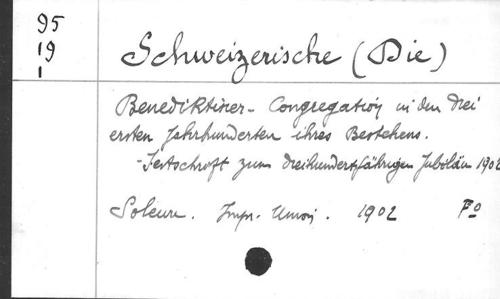 95
19
1
Schweizerische (Die)
Benediktiner- Congregation in den drei
ersten Jahrhunderten ihres Bestehens.
- Festschrift zum dreihundertjährigen Jubiläum 1902
Soleure. Impr. Union. 1902 Fo